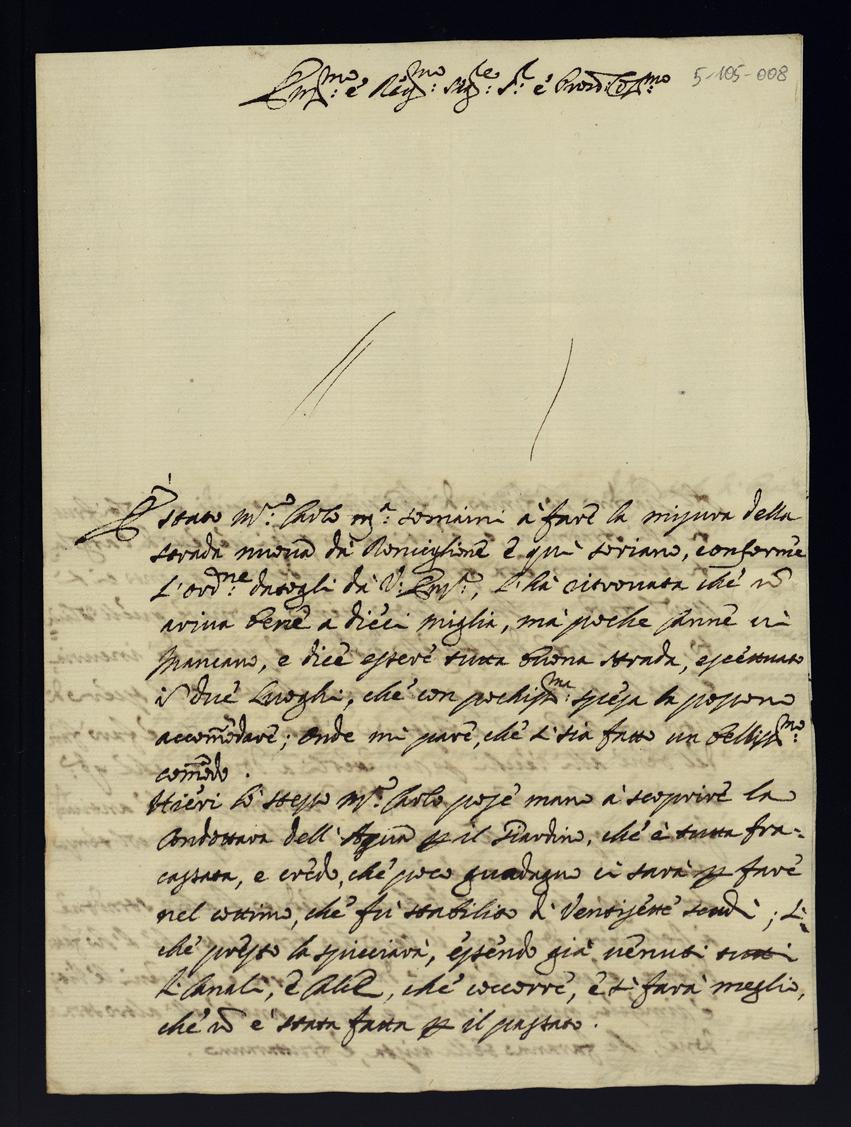 Em.mo e Re.mo Sig.re S.r e Pron Col.mo
5-105-008
È stato M.ro Carlo m.a à fare la misura della
strada nuova da Ronciglione e quì Soriano, conforme
l'ord.ne datogli dà V. Em.a, l'hà ritrovata che nō
ariva bene a dieci miglia, mà poche canne vi
mancano, e dice essere tutta buona strada, eccettuato
in due luoghi, che con pochiss.ma spesa la possono
accomodare; onde mi pare, che si sia fatto un belliss.mo
comōdo.
Hieri lò stesso M.ro Carlo pose mano à scoprire la
Condottura dell'Aqua p il Giardino, che è tutta fra-
cassata, e credo, che poco guadagno ci sarà p fare
nel cottimo, che fù stabilito di Ventisette scudi; Sì
che presto la spicciarà, essendo già venuti tutti
li Canali, e Calce, che occorre, e si farà meglio,
che nō è stata fatta p il passato.